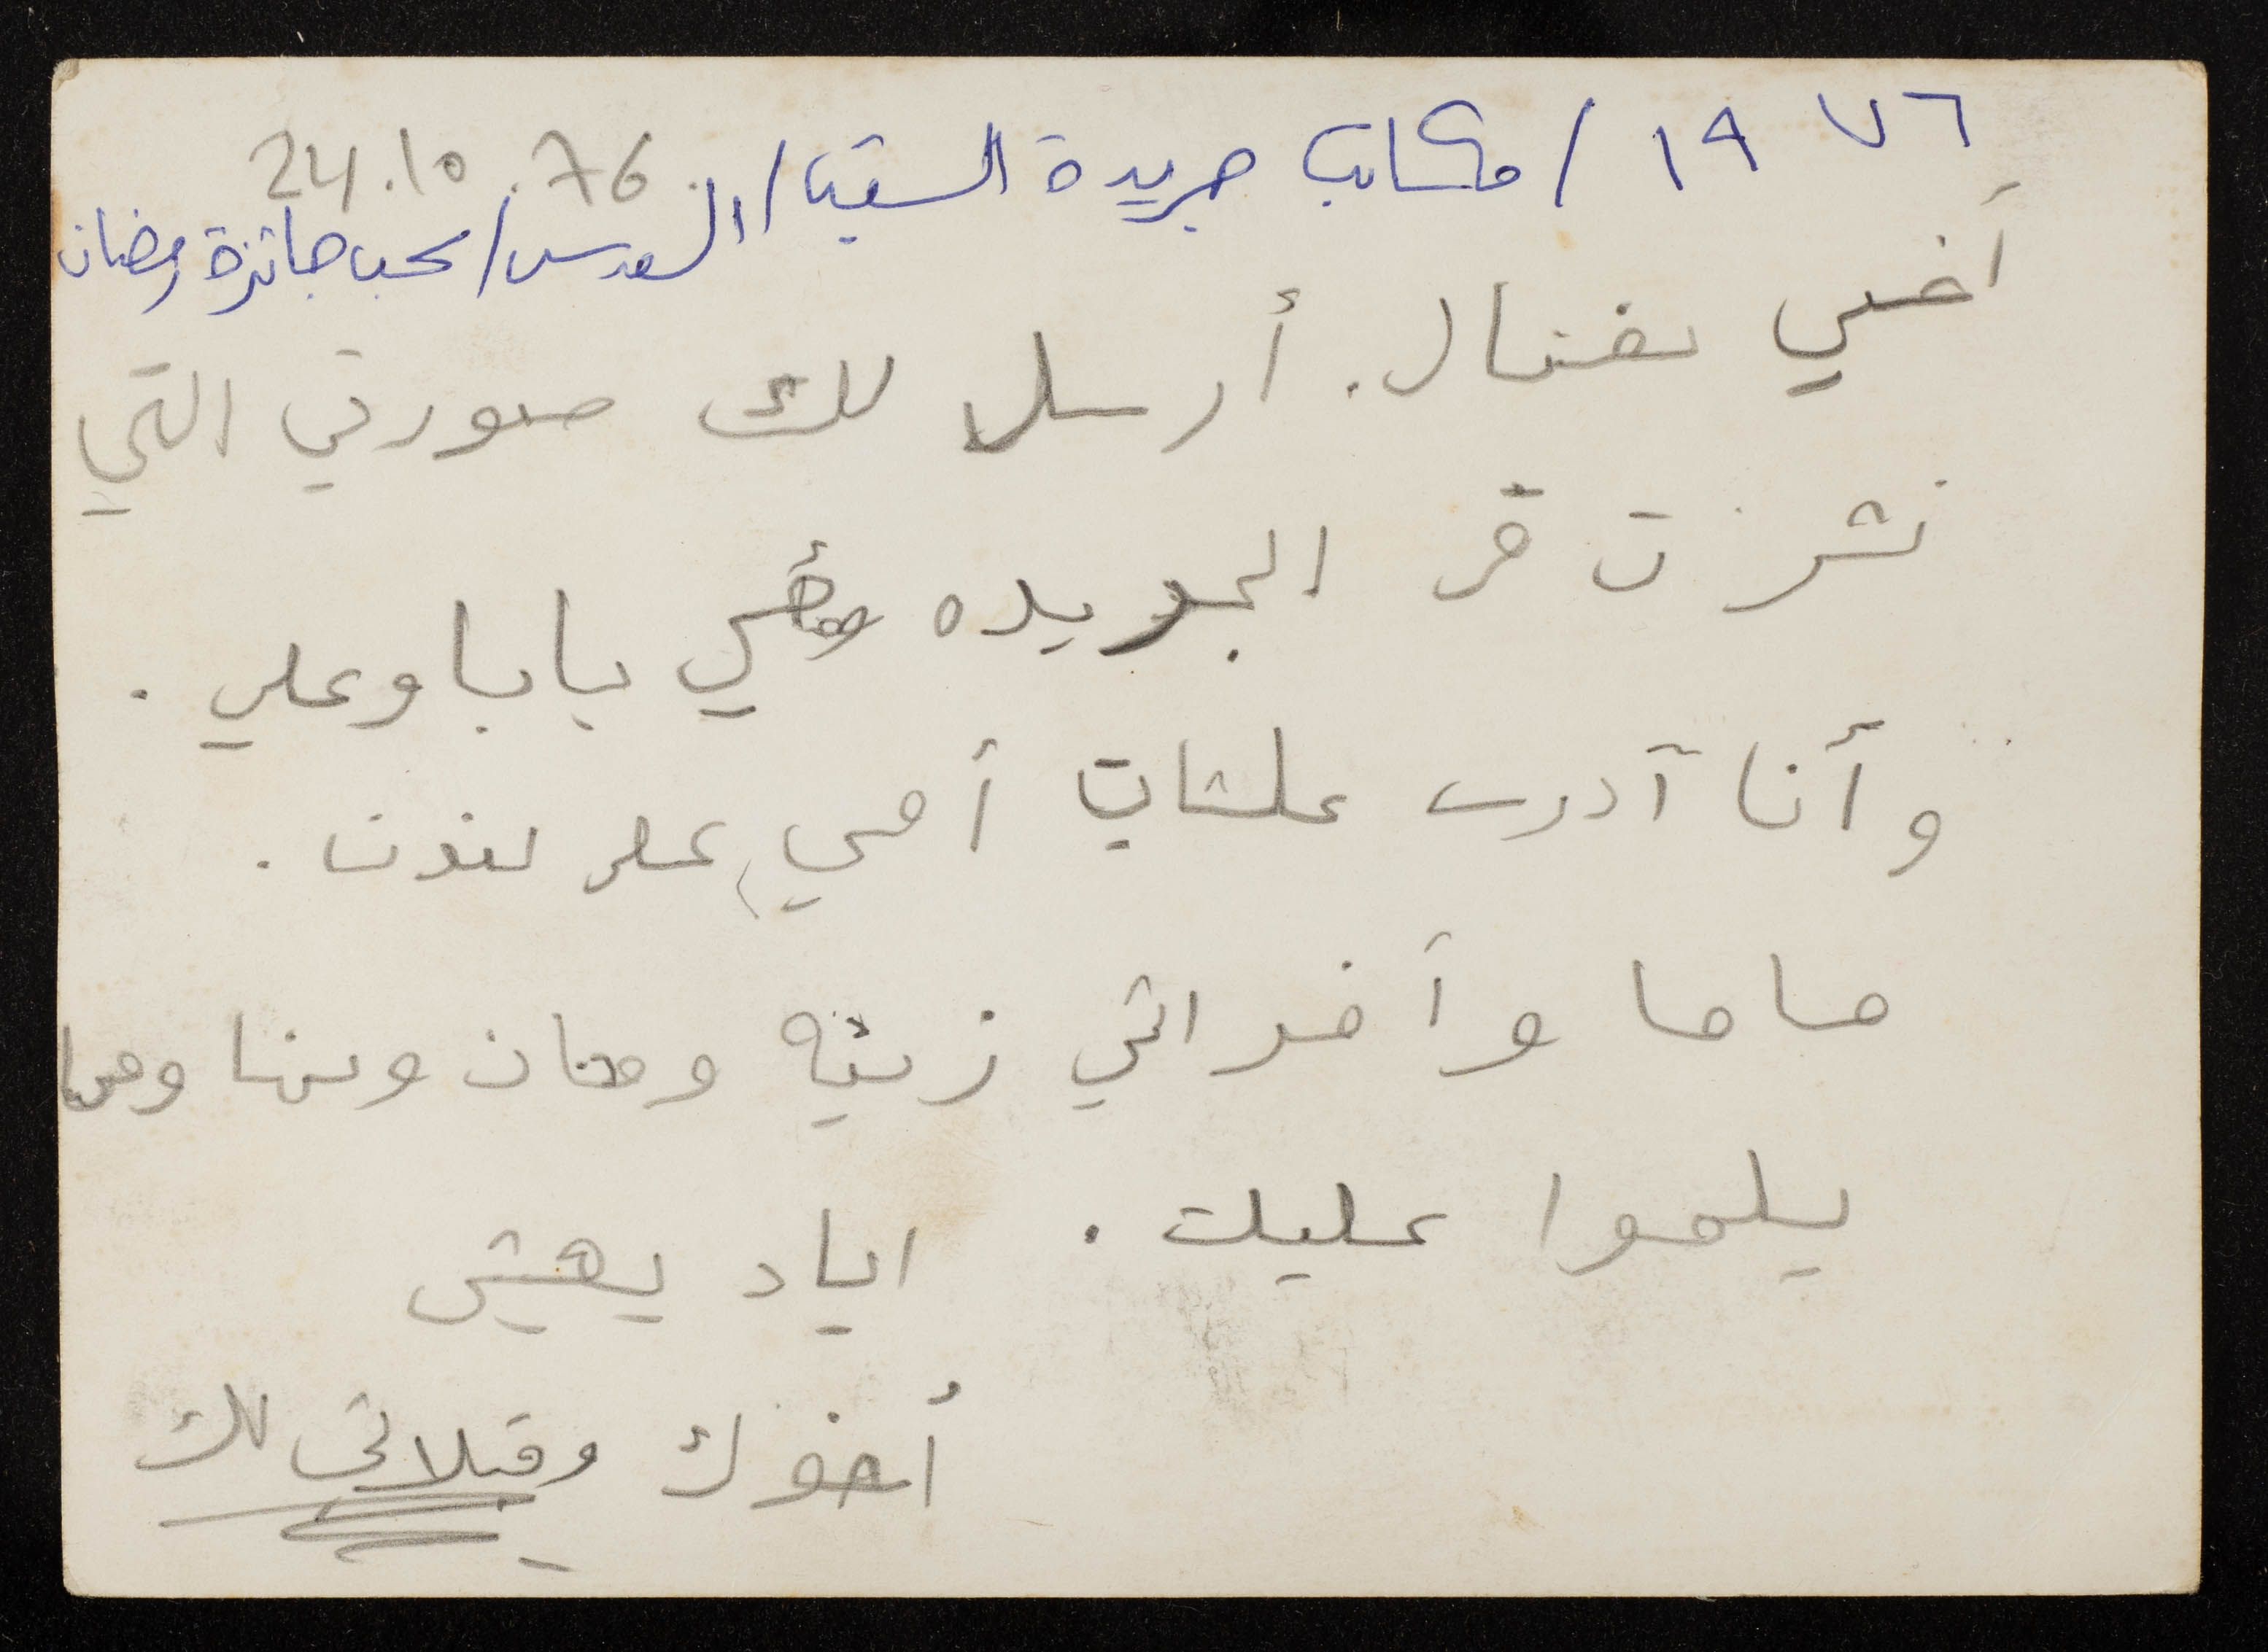 ١٩٧٦ / مكاتب جريدة الشعب /
24.10.76.
القدس / سحب جائزة رمضان
أخي نضال. أرسل لك صورتي التي
نشرت في الجريده مع بابا وعلي.
وأنا أدرس علشان أجي على لندن.
ماما وأخواتي زينه وحنان ومها
يسلموا عليك. اياد يهتي
أخوك وقبلاتي لك